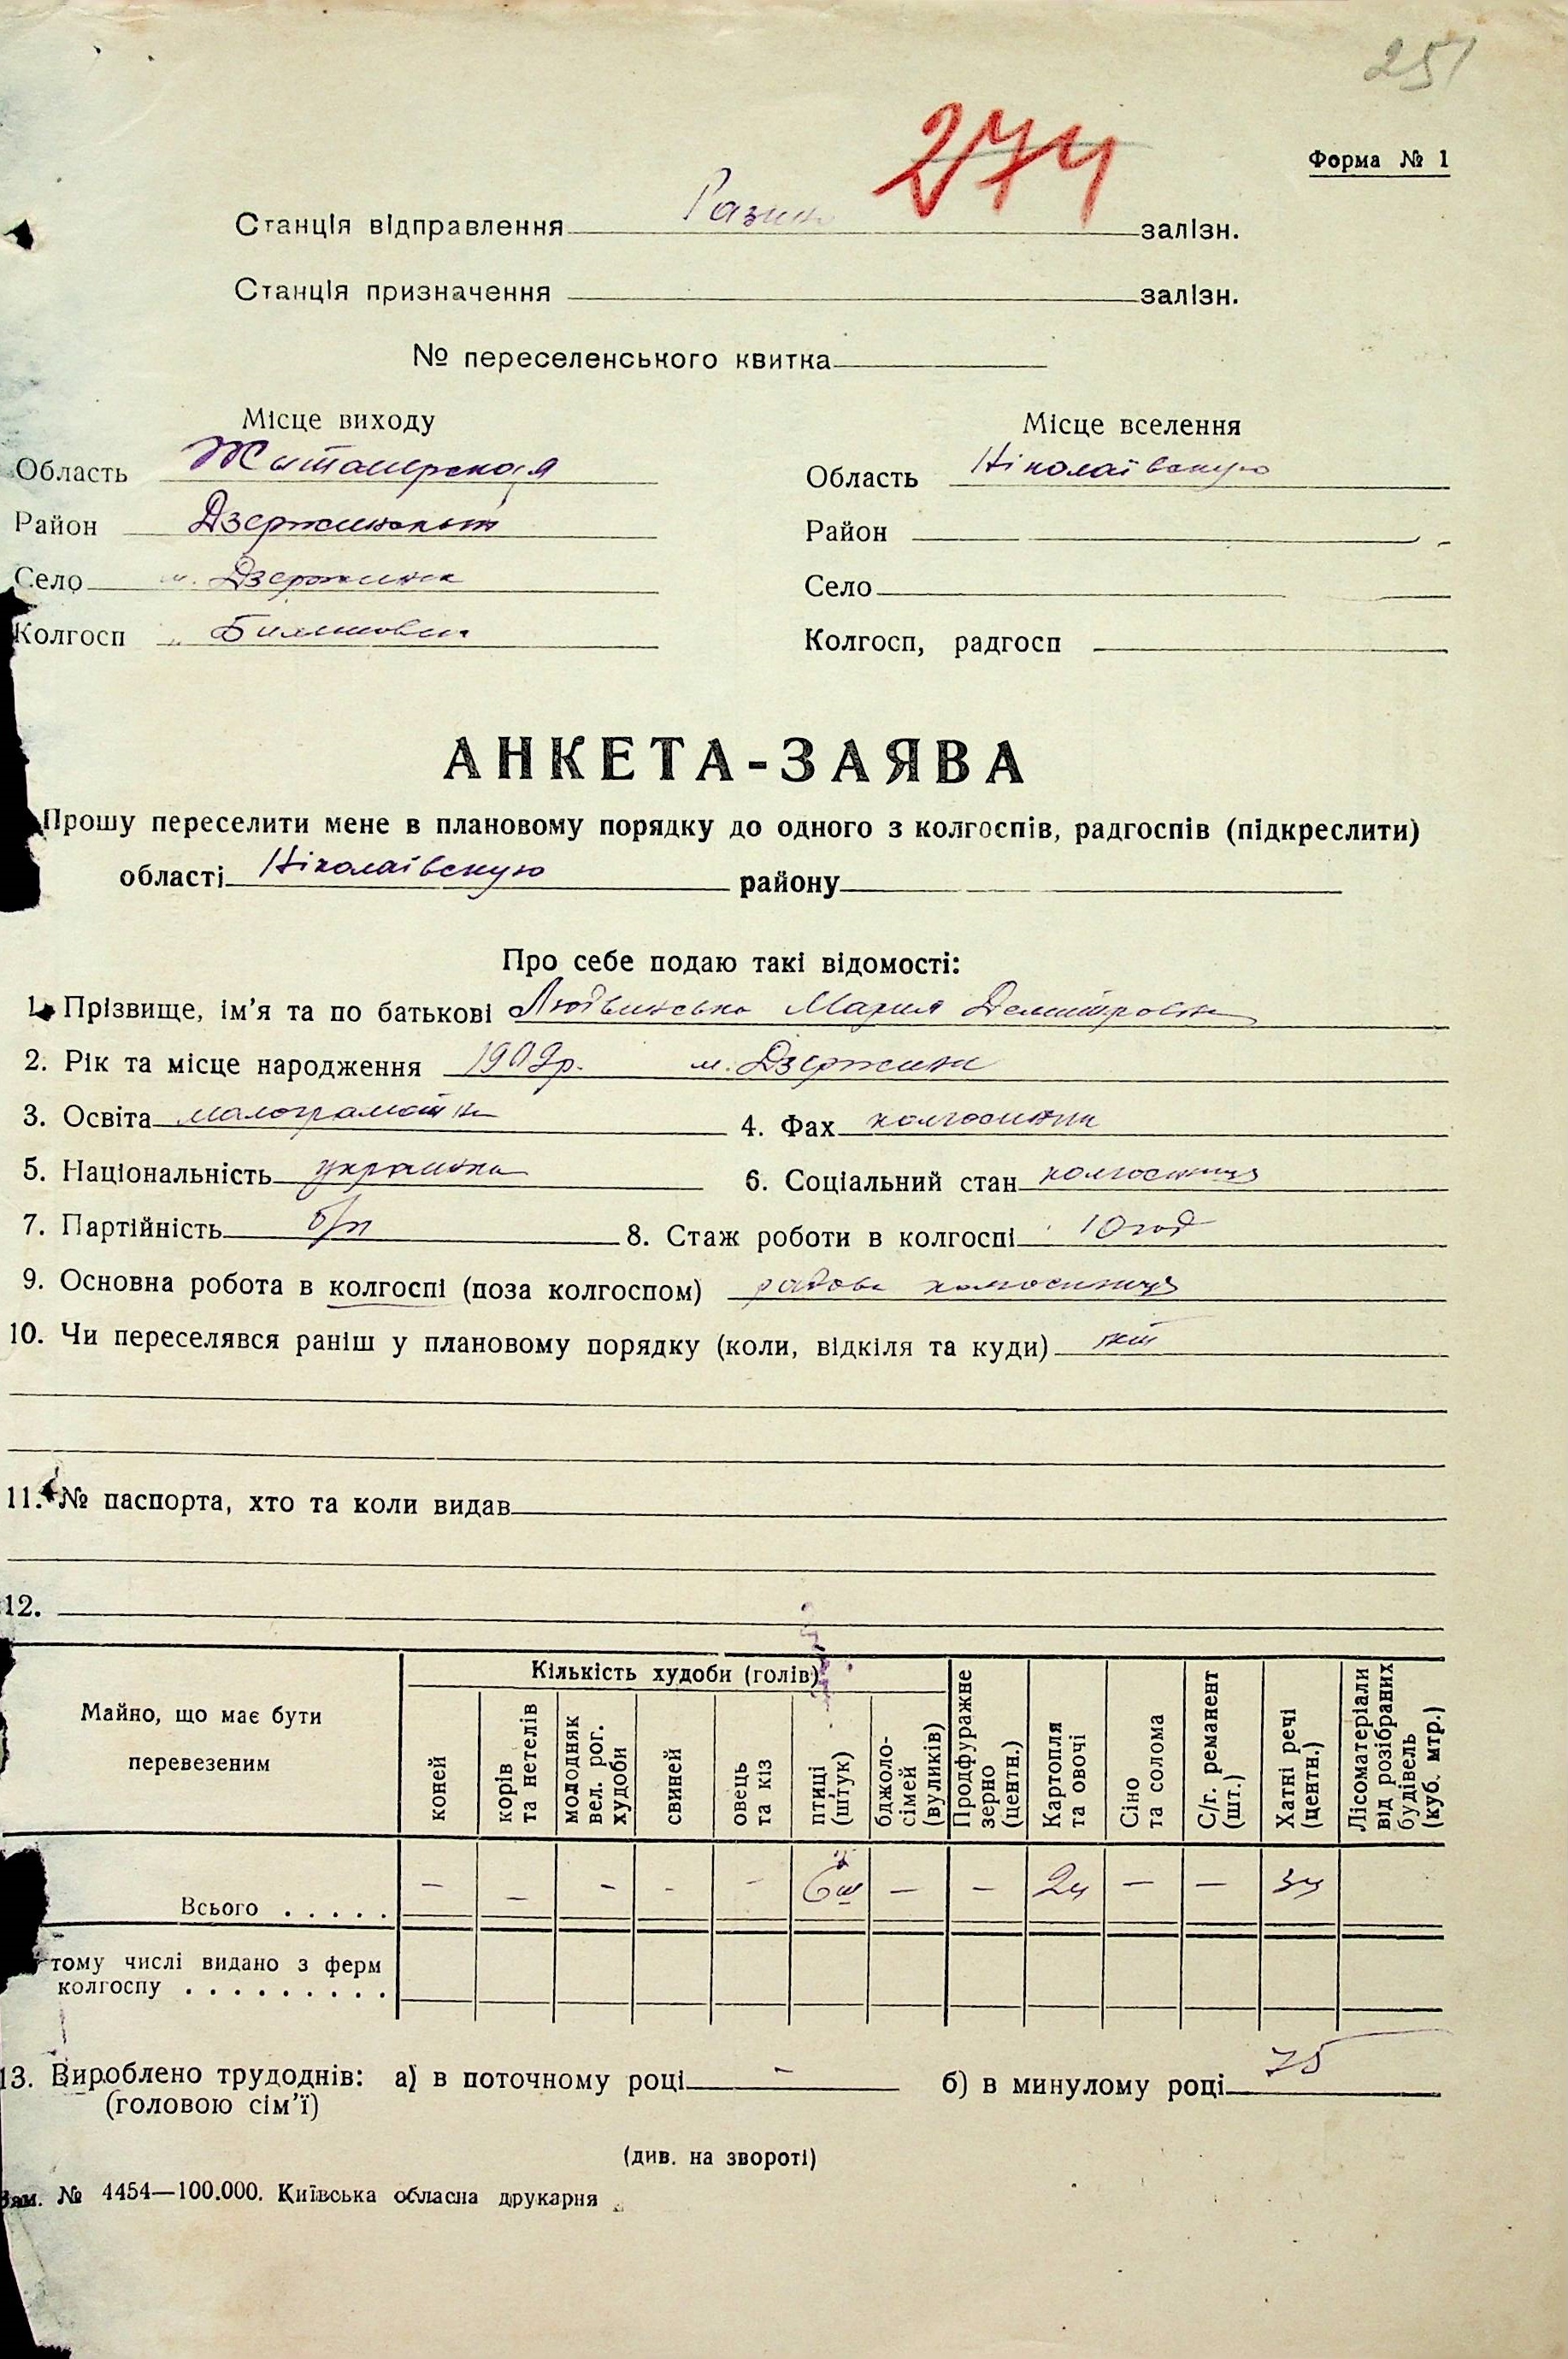 251
274
Форма № 1
Станція відправлення Разин залізн.
Станція призначення залізн.
№ переселенського квитка
Місце виходу Місце вселення
Область Житомирская Область Ніколаївскую
Район Дзержинский Район
Село м. Дзержинск Село
Колгосп Колгосп, радгосп
АНКЕТА-ЗАЯВА
Прошу переселити мене в плановому порядку до одного з колгоспів, радгоспів (підкреслити)
області Ніколаївскую району
Про себе подаю такі відомості:
1. Прізвище, ім'я та по батькові Мария
2. Рік та місце народження 1909р. м. Дзержинск
3. Освіта малограмотна 4. Фах
5. Національність українка 6. Соціальний стан колгоспниця
7. Партійність б/п 8. Стаж роботи в колгоспі 10 год
9. Основна робота в колгоспі (поза колгоспом) рядова колгоспниця
10. Чи переселявся раніш у плановому порядку (коли, відкіля та куди) ні
11. № паспорта, хто та коли видав
12.
Майно, що має бути
перевезеним
Кількість худоби (голів)
коней
корів
та нетелів
молодняк
вел. рог.
худоби
свиней
овець
та кіз
птиці
(штук)
бджоло-
сімей
(вуликів)
Продфуражне
зерно
(центн.)
Картопля
та овочі
Сіно
та солома
С/г. реманент
(шт.)
Хатні речі
(центн.)
Лісоматеріали
від розібраних
будівель
(куб. мтр.)
Всього . . . . . — — — — — 6 ш — — 2ц — — 3ц
тому числі видано з ферм
колгоспу . . . . . . . . .
13. Вироблено трудоднів: а) в поточному році — б) в минулому році 75
(головою сім'ї)
(див. на звороті)
Зам. № 4454—100.000. Київська обласна друкарня